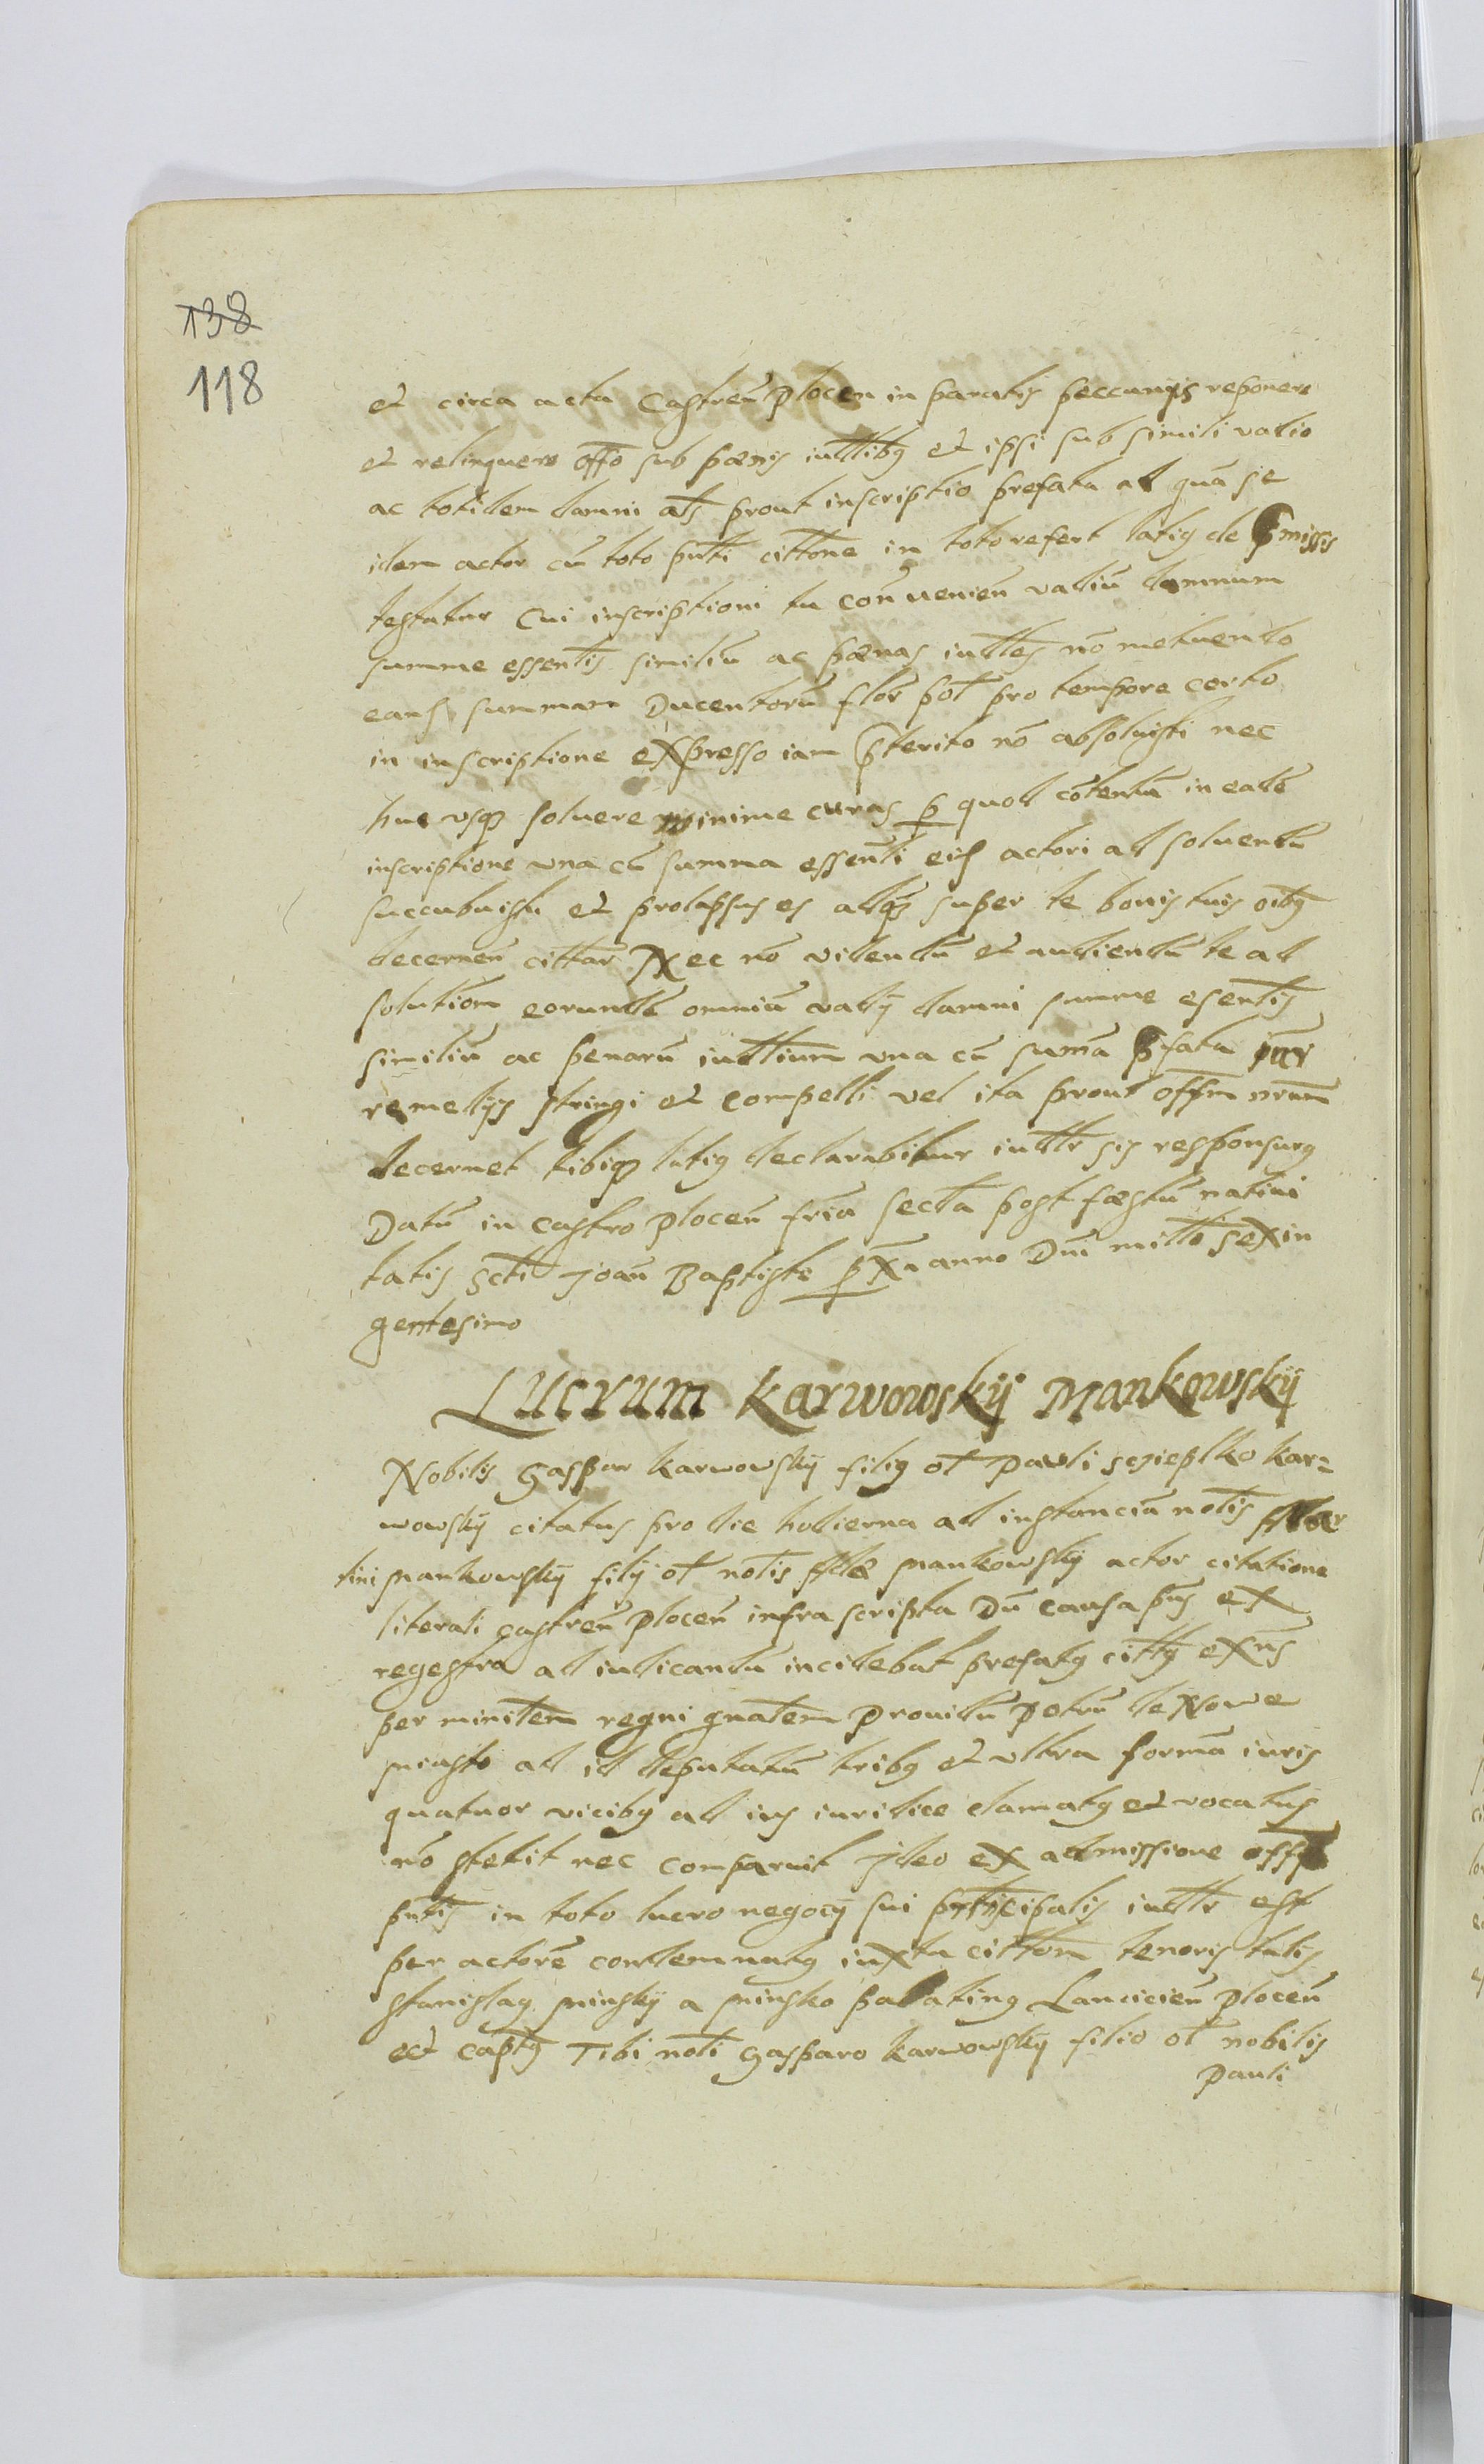 138
118
et circa acta Castren̄ plocen in paratis peccunijs reponere
et relinquere offō sub poenis iudttibꝫ et ipsi sub simili vadio
ac totidem damni als prout inscriptio prefata ad quā se
idem actor cū toto pn̄ti cittone in toto refert latiꝰ de p̄missis
testatur Cui inscriptioni tu con̄uenien̄ vadiū damnum
summe essentis similiū ac poenas iudttes nō metuendo
eand summam Ducentorū flor̄ pol̄ pro tempore certo
in inscriptione expresso iam p̄terito nō absoluisti nec
huc vsqꝫ soluere minime curas ꝑ quod cōtentū in eadē
inscriptione vna cū summa essen̄ti eid actori ad soluendū
succubuisti et prolapsus es atqꝫ super te bonis tuis oībꝫ
decernen̄ cittar Nec nō videndū et audiendū te ad
solutiōm eorundē omniū vadij damni summe esen̄tis
similiū ac penarū iudttium vna cū sumā p̄fata iur̄
remedijs stringi et compelli vel ita prout offm nrūm
decernet tibiqꝫ latiꝰ declarabitur iudttr sis responsurꝰ
Datū in castro plocen̄ fria secda post foestū natiui
tatis Scti Joan̄ Baptiste ꝑxa anno Dn̄i mill̄o sexin
gentesimo
Lucrum Karwowskÿ Mankowskÿ
Nobilis Gaspar karwowskÿ filiꝰ ol̄ pauli sczieplko kar=
wowskÿ citatus pro die hodierna ad instanciā nol̄is Mar
tini mankowskÿ filÿ ol̄ nol̄is mankowskÿ actor citatione
literali castren̄ plocen̄ infra scripta Dū causa pn̄s ex
regestro ad iudicandū incidebat prefatꝰ cittꝰ exn̄s
per ministem regni gnatem prouidū petrū de Nowe
miasto ad id deputatū tribꝫ et vltra formā iuris
quatuor vicibꝫ ad ius iuridice clamatꝰ et vocatus
nō stetit nec comparuit Jdeo ex admissione offÿ
pn̄tis in toto lucro negocÿ sui principalis iudttr est
per actorē condemnatꝰ iuxta cittom̄ tenoris talis
Stanislaꝰ minskÿ a minsko palatinꝰ Lancicien̄ plocen̄
ect captꝰ Tibi nol̄i Gasparo karwowskÿ filio ol̄ nobilis
pauli